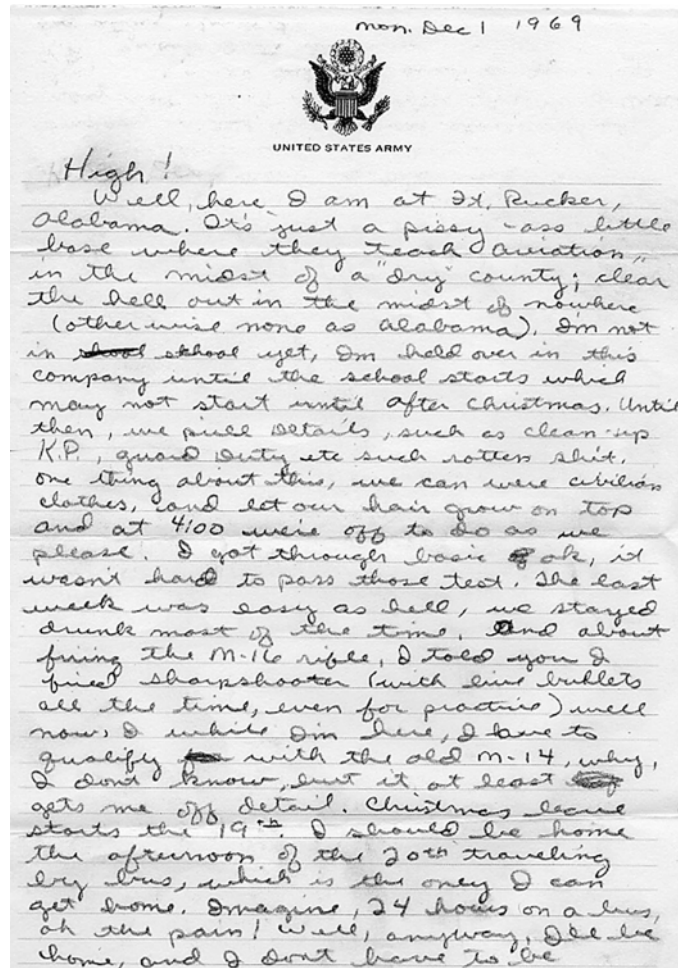 mon. Dec 1 1969
UNITED STATES ARMY
High!
Well, here I am at Ft. Rucker,
Alabama. It's just a pissy-ass little
base where they teach aviation,,
in the midst of a "dry" county; clear
the hell out in the midst of nowhere
(other wise none as Alabama). I'm not
in school yet, I'm held over in this
company until the school starts which
may not start until after Christmas. Until
then, we pull details, such as clean-up
K.P., guard duty etc such rotten shit.
one thing about this, we can were civilian
clothes, and let our hair grow on top
and at 4:00 we're off to do as we
please. I got through basic ok, it
wasn't hard to pass those test. The last
week was easy as hell, we stayed
drunk most of the time. And about
firing the M-16 rifle, I told you I
fired sharpshooter (with live bullets
all the time, even for practice) well
now, I while I'm here, I have to
qualify with the old M-14, why,
I dont know, but it at least
gets me off detail. Christmas leave
starts the 19th. I should be home
the afternoon of the 20th traveling
by bus, which is the only I can
get home. Imagine, 24 hours on a bus,
oh the pain! Well, anyway, I'll be
home, and I dont have to be